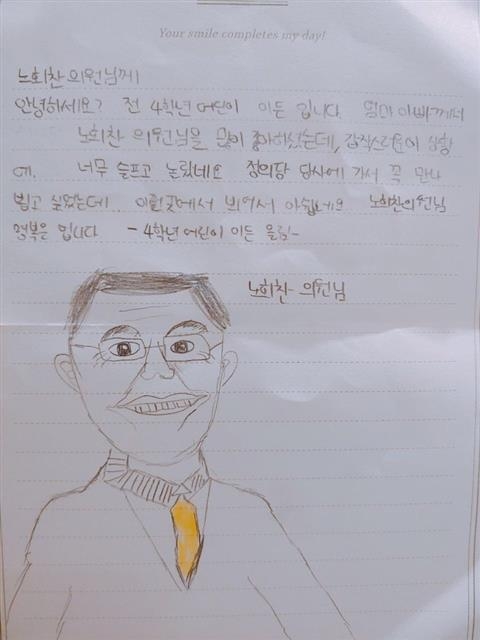 Your smile completes my day!
노회찬 의원님께
안녕하세요? 전 4학년 어린이 이든 입니다. 엄마 아빠께서
노회찬 의원님을 많이 좋아하셨는데, 갑작스러운 이 상황
에. 너무 슬프고 놀랐네요 정의당 당사에 가서 꼭 만나
뵙고 싶었는데.. 이런곳에서 뵈어서 아쉽네요 노회찬의원님
명복을 빕니다 - 4학년 어린이 이든 올림-
노회찬 의원님